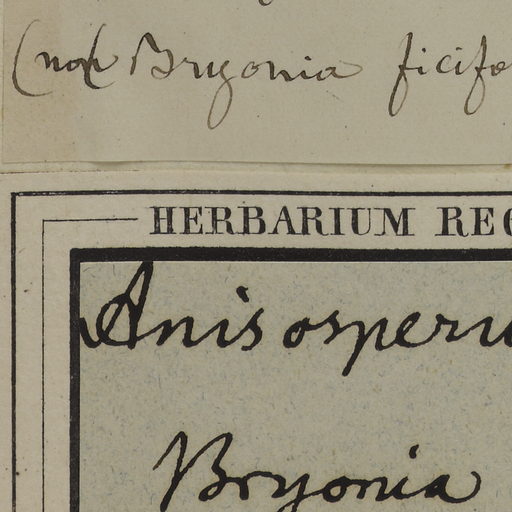 (non Bryonia ficifo
HERBARIUM REG
Anisosperm
Bryonia